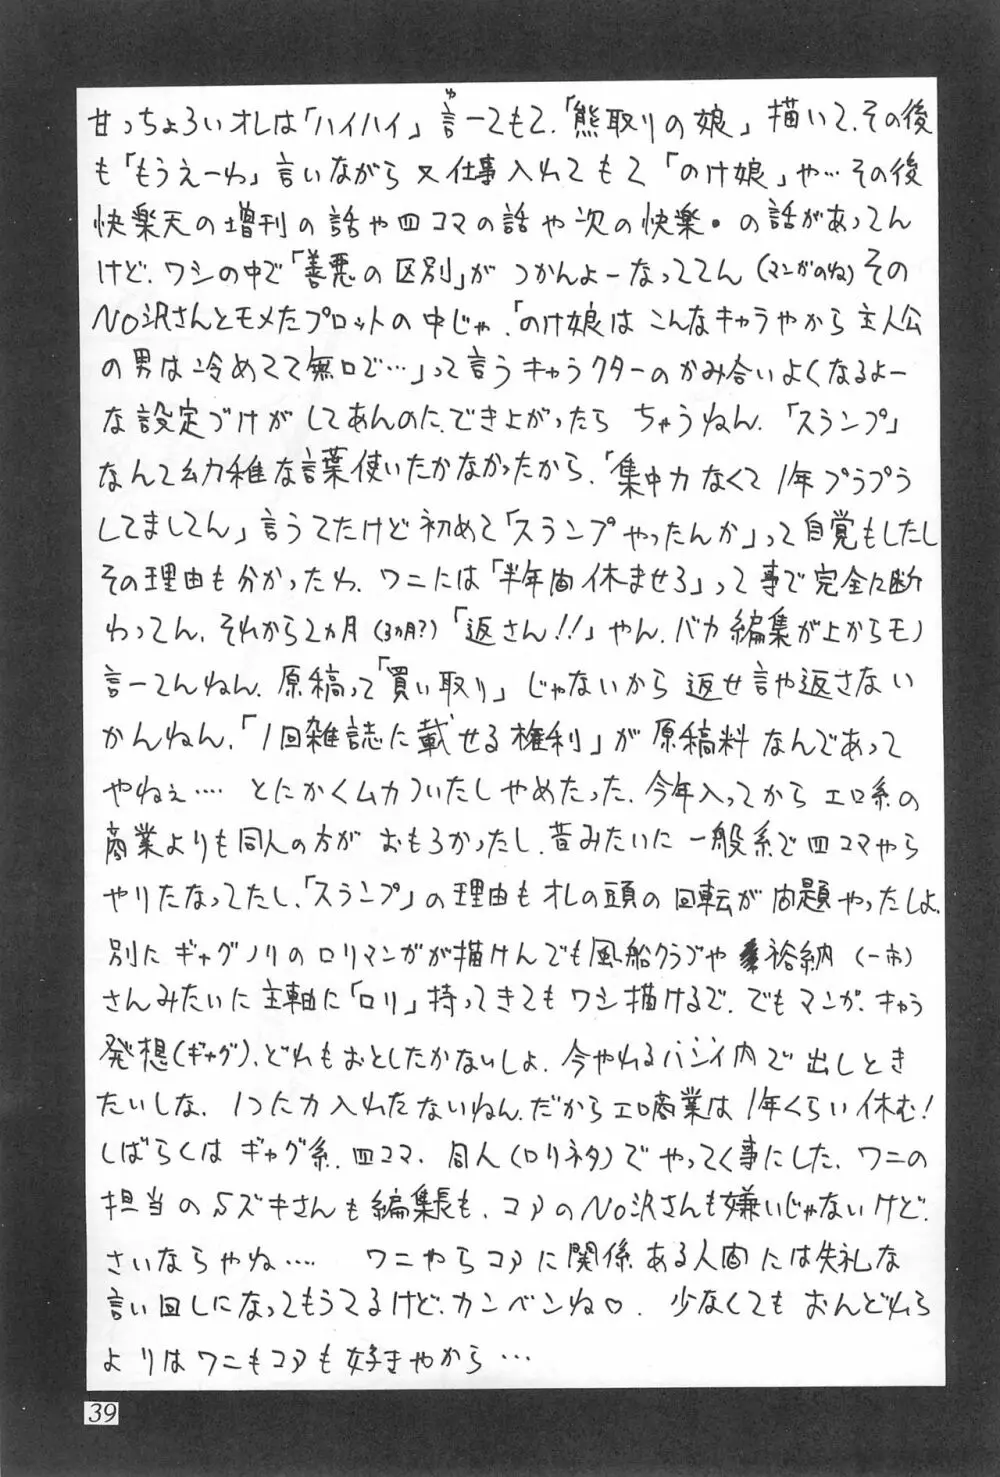 甘っちょろいオレは「ハイハイ」言ーてもて、「熊取りの娘」描いて、その後
も「もうえーわ」言いながら又仕事入れてもて「のけ娘」や…その後
快楽天の増刊の話や四コマの話や次の快楽・の話があってん
けど、ワシの中で「善悪の区別」がつかんよーなっててん(マンガのね)その
No沢さんとモメたプロットの中じゃ、「のけ娘はこんなキャラやから主人公
の男は冷めてて無口で…」って言うキャラクターのかみ合いよくなるよー
な設定づけがしてあんのに、でき上がったらちゃうねん、「スランプ」
なんて幼稚な言葉使いたかなかったから、「集中力なくて1年プラプラ
してましてん」言うてたけど初めて「スランプやったんか」って自覚もしたし
その理由も分かったわ、ワニには「半年間休ませろ」って事で完全に断
わってん、それから2ヵ月(3ヵ月?)「返さん!!」やん、バカ編集が上からモノ
言ーてんねん、原稿って「買い取り」じゃないから返せ言や返さない
かんねん、「1回雑誌に載せる権利」が原稿料なんであって
やねぇ…. とにかくムカついたしやめたった、今年入ってからエロ系の
商業よりも同人の方がおもろかったし、昔みたいに一般系で四コマやら
やりたなってたし、「スランプ」の理由もオレの頭の回転が問題やったしよ、
別にギャグノリのロリマンガが描けんでも風船クラブや裕納(一市)
さんみたいに主軸に「ロリ」持ってきてもワシ描けるで、でもマンガ、キャラ
発想(ギャグ)、どれもおとしたかないしよ、今やれるハンイ内で出しとき
たいしな、1つに力入れたないねん、だからエロ商業は1年くらい休む!
しばらくはギャグ系、四コマ、同人(ロリネタ)でやってく事にした、ワニの
担当のSズキさんも編集長も、コアのNo沢さんも嫌いじゃないけど、
さいならやね…. ワニやらコアに関係ある人間には失礼な
言い回しになってもうてるけど、カンベンね♡. 少なくてもおんどれら
よりはワニもコアも好きやから…
39